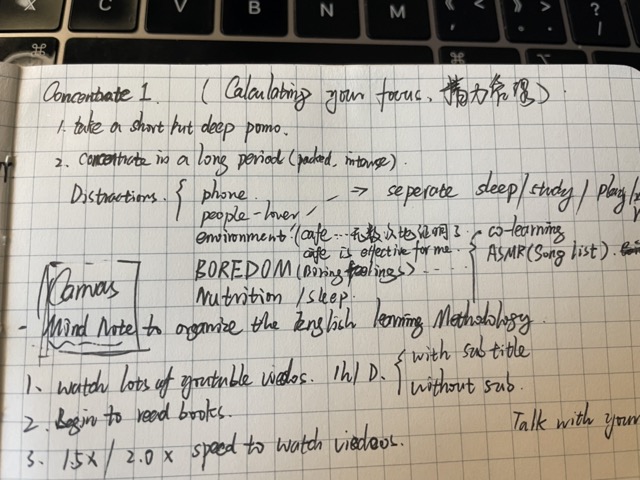 X C V B N M < 《 > 》 ? /
⌘ ⌘
Concentrate 1. ( Calculating your focus. 精力管理 ) .
1. take a short but deep pomo.
2. concentrate in a long period (packed, intense) .
Distractions. { phone. / => seperate sleep/study / play/
people-lover /
environment. (cafe ... 无数次地证明了 { co-learning
cafe is effective for me. ASMR (Song list) .
BOREDOM (Boring feelings) ....
Nutrition / sleep.
Canvas
- Mind Note to organize the English learning Methodology.
1. watch lots of youtube viedos. 1h/ D. { with subtitle
without sub.
2. Begin to read books.
Talk with your
3. 1.5x / 2.0 x speed to watch viedeos.